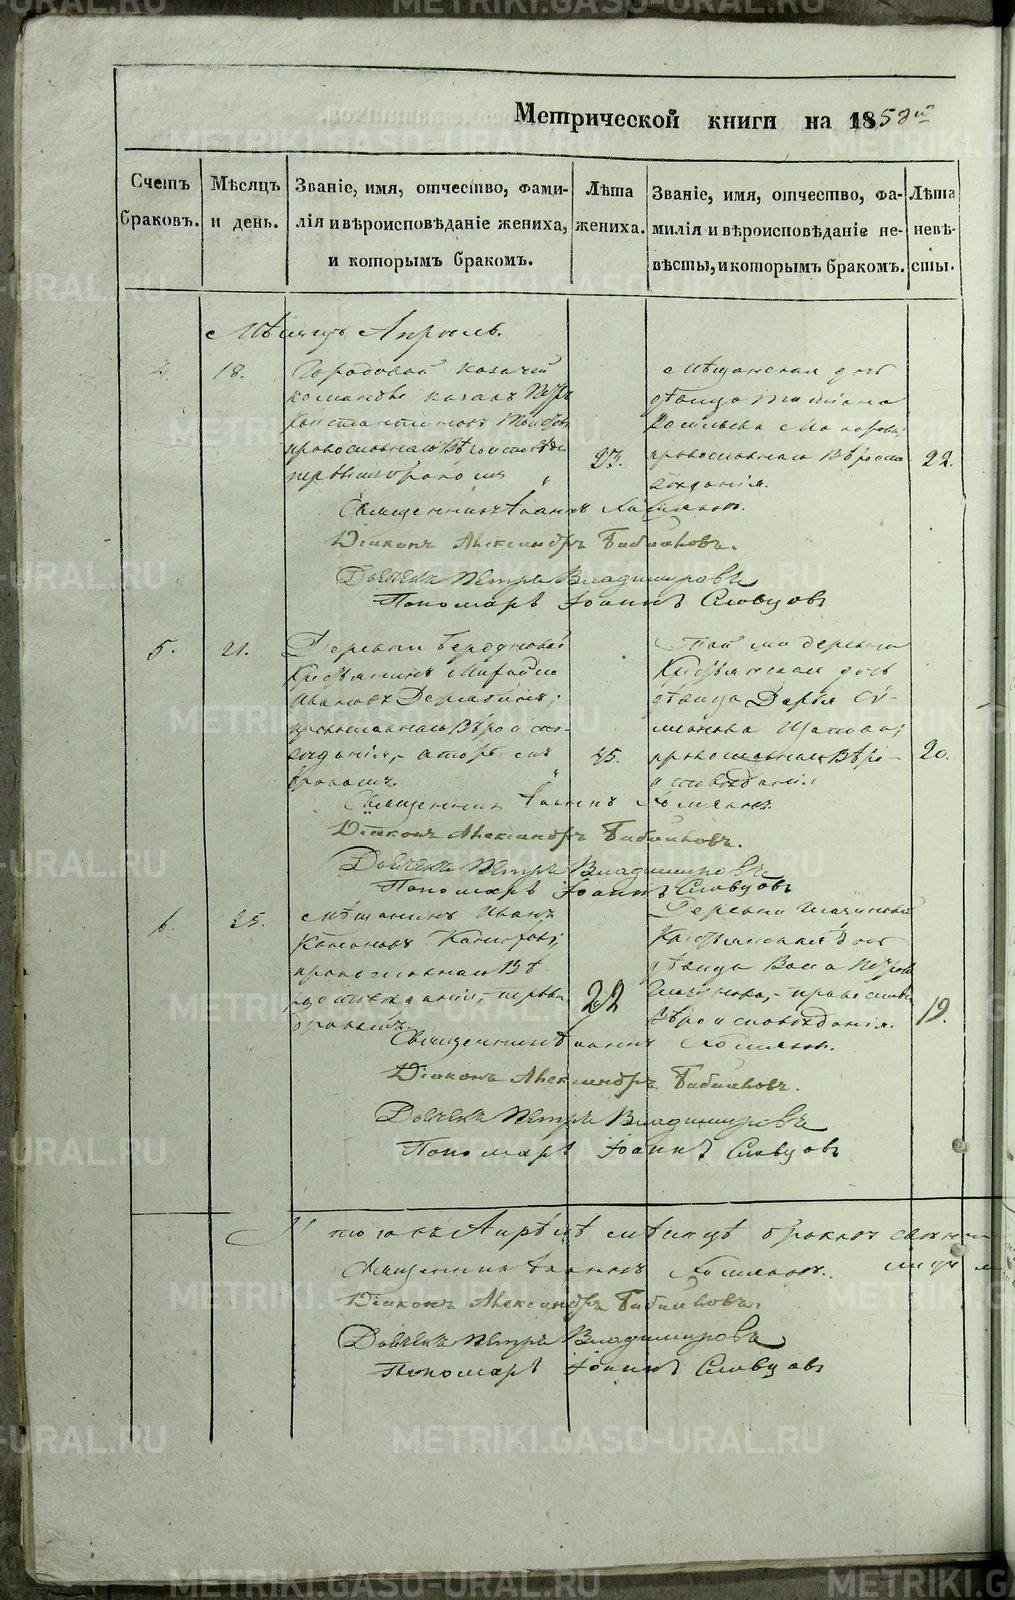 METRIKI.GASO-URAL.RU
Метрической книги на 1858й
Счетъ браковъ.
Мѣсяцъ и день.
Званіе, имя, отчество, фами-
лія и вѣроисповѣданіе жениха,
и которымъ бракомъ.
Лѣта
жениха.
Званіе, имя, отчество, фа-
милія и вѣроисповѣданіе не-
вѣсты, и которымъ бракомъ.
Лѣта
невѣ-
сты.
Мѣсяцъ Апрель.
18.
Городовой казачей
команды казакъ Петръ
Константиновъ
православнаго Вѣроисповѣда
первымъ бракомъ
23.
Мѣщанская дочь
дѣвица
Васильева Макарова,
православнаго Вѣроиспо
вѣданія.
22.
Священникъ Іоаннъ Хомяковъ.
Діаконъ Александръ
Дьячекъ Петръ Владимировъ
Пономарь Іоаннъ Словцовъ
5.
21.
Деревни
Крестьянинъ Михайло
Ивановъ
православнаго Вѣроиспо-
вѣданія, вторымъ
бракомъ.
25.
Той жъ деревни
Крестьянская дочь
дѣвица Дарья Си-
меонова
православнаго Вѣро-
исповѣданія
20.
Священникъ Іоаннъ Хомяковъ.
Діаконъ Александръ
Дьячекъ Петръ Владимировъ
Пономарь Іоаннъ Словцовъ
6.
25.
Мѣщанинъ Иванъ
православнаго Вѣ
роисповѣданія, первымъ
бракомъ
22
Деревни
Крестьянская дочь
дѣвица Васса Петрова
православна
Вѣроисповѣданія.
19.
Священникъ Іоаннъ Хомяковъ.
Діаконъ Александръ
Дьячекъ Петръ Владимировъ
Пономарь Іоаннъ Словцовъ
Итого въ Апрѣлѣ мѣсяцѣ браковъ
Священникъ Іоаннъ Хомяковъ.
Діаконъ Александръ
Дьячекъ Петръ Владимировъ
Пономарь Іоаннъ Словцовъ